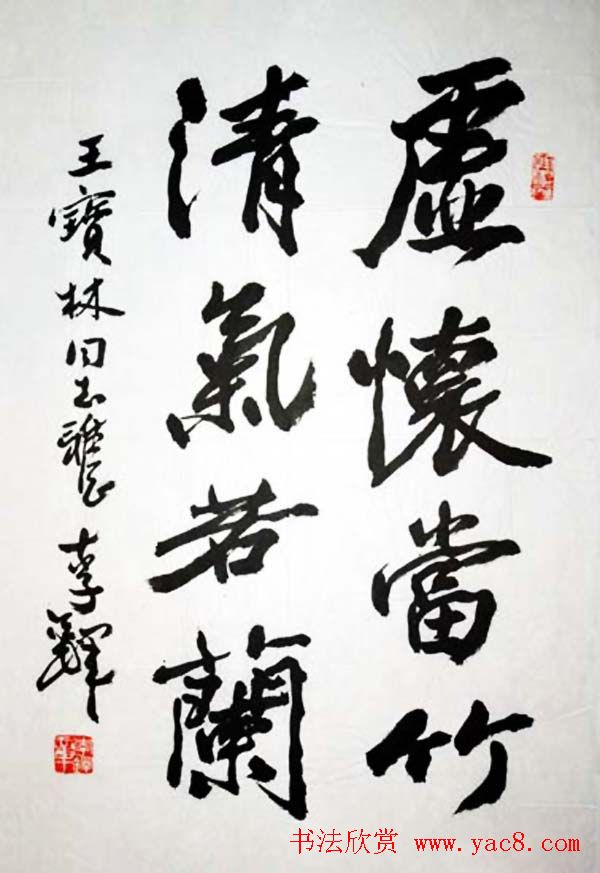 虛懷當竹
清氣若蘭
王寶林同志雅正
李鐸
书法欣赏 www.yac8.com